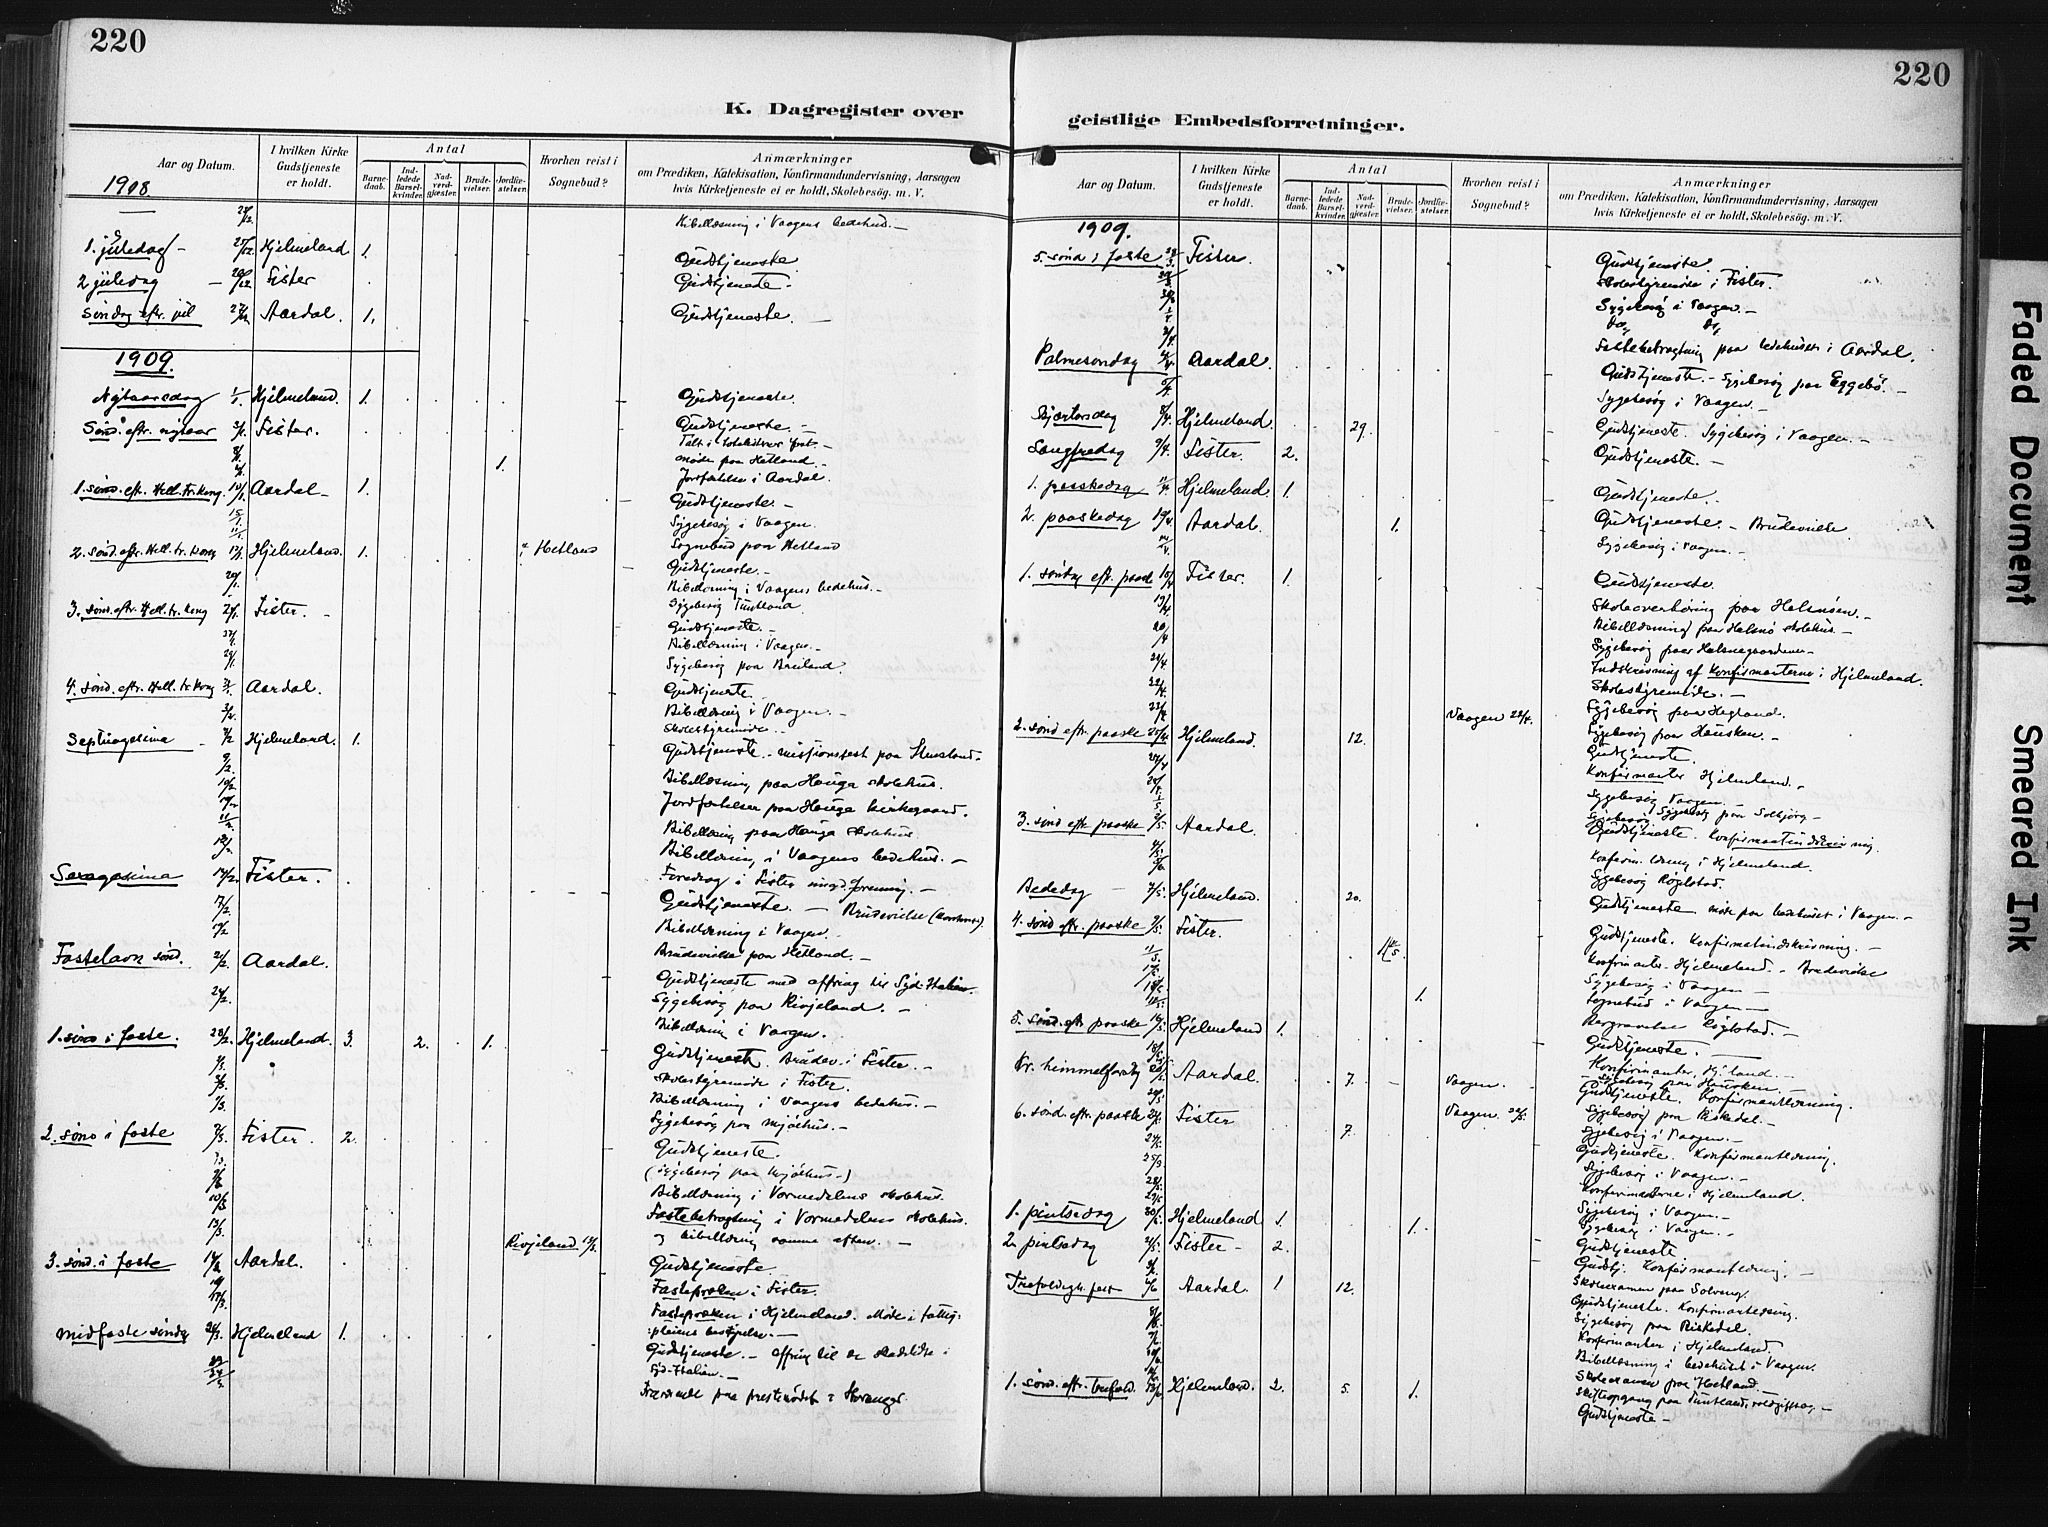 220
K. Dagregister over
Aar og Datum.
I hvilken Kirke Gudstjeneste er holdt.
Antal
Barnedaab.
Indledede Barselkvinder.
Nadverdgjæster.
Brudevielser.
Jordfæstelser.
Hvorhen reist i Sognebud?
Anmærkninger
om Prædiken, Katekisation, Konfirmandundervisning, Aarsagen
hvis Kirketjeneste ei er holdt, Skolebesøg. m. V.
1908.
Bibellæsning i Vaagens bedehus.
1. juledag 25/12 Hjelmeland 1. Gudstjeneste
2 juledag 26/12 Fister Gudstjeneste.
Søndag eftr. jul 27/12 Aardal. 1. Gudstjeneste.
1909.
Nytaarsdag 1/1 Hjelmeland. 1. Gudstjeneste.
Sønd. eftr. nytaar 3/1 Fister. Gudstjeneste.
møde paa Hetland.
1. Jordfæstelse i Aardal.
1. sønd. eftr. Hell. tr. kong. 10/1 Aardal 1. Gudstjeneste.
Sygebesøg i Vaagen.
Hetland Sognebud paa Hetland
2. sønd. eftr. Hell. tr. kong 17/1 Hjelmeland. 1. Gudstjeneste.
20/1. Bibellæsning i Vaagens bedehus.
Sygebesøg Tuntland.
3. sønd. eftr. Hell. tr. kong 24/1 Fister. Gudstjeneste.
27/1 Bibellæsning i Vaagen.
29/1. Sygebesøg paa Breiland.
4. sønd. eftr. Hell. tr. kong 31/1 Aardal. Gudstjeneste.
3/2 Bibellæsning i Vaagen.
Skolestyremøde.
Septuagesima 7/2 Hjelmeland. 1. Gudstjeneste. missionsfest paa
9/2. Bibellæsning paa Hauga skolehus.
10/2 Jordfæstelser paa Hauga kirkegaard.
Bibellæsning paa Hauga skolehus
Bibellæsning i Vaagens bedehus.
Foredrag i Fister ungd. forening.
Sexagesima 14/2. Fister. Gudstjeneste. Brudevielse
17/2. Bibellæsning i Vaagen.
Brudevielse paa Hetland.
Fastelavn sønd. 21/2. Aardal. Gudstjeneste med offring til Syd-Italien.
Sygebesøg paa Rivjeland.
24/2. Bibellæsning i Vaagen.
1. sønd i faste. 28/2. Hjelmeland. 3. 2. 1. Gudstjeneste. Brudev. i Fister.
Skolestyremøde i Fister.
Bibellæsning i Vaagens bedehus.
Sygebesøg paa Mjølhus.
2. sønd i faste 7/3. Fister. 2. Gudstjeneste.
(Sygebesøg paa Mjølhus.)
Bibellæsning i Vormedalens skolehus.
10/3 Fastebetragtning i Vormedalens skolehus.
og bibellæsning samme aften.
Rivjeland 13/3.
3. sønd. i faste 14/3 Aardal. Gudstjeneste
Fastepræken i Fister.
17/3. Fastepræken i Hjelmeland. Møde i fattig-
pleiens bestyrelse.
Midfaste søndag 21/3. Hjelmeland 1. Gudstjeneste. offring til de skadelidte i
Syd-Italien.
Fraværende paa prestemødet i Stavanger.
220
geistlige Embedsforretninger.
Aar og Datum.
I hvilken Kirke Gudstjeneste er holdt.
Antal
Barnedaab.
Indledede Barselkvinder.
Nadverdgjæster.
Brudevielser.
Jordfæstelser.
Hvorhen reist i Sognebud?
Anmærkninger
om Prædiken, Katekisation, Konfirmandundervisning, Aarsagen
hvis Kirketjeneste ei er holdt, Skolebesøg. m. V.
1909.
5. sønd i faste 28/3. Fister. Gudstjeneste.
Skolestyremøde i Fister.
Sygebesøg i Vaagen.
Do, Do,
Fastebetragtning paa bedehuset i Aardal.
Palmesøndag 4/4 Aardal. Gudstjeneste. Sygebesøg paa Eggebø.
Sygebesøg i Vaagen.
Skjærtorsdag 8/4 Hjelmeland. 29. Gudstjeneste. Sygebesøg i Vaagen.
Langfredag 9/4. Fister. 2. Gudstjeneste.
1. paaskedag 11/4 Hjelmeland 1. Gudstjeneste.
2. paaskedag Aardal. 1. Gudstjeneste. Brudevielse
Sygebesøg i Vaagen.
1. søndag eftr. paaske Fister. 1. Gudstjeneste.
19/4. Skoleoverhøring paa Halsnøen.
20/4 Bibellæsning paa Halsnø skolehus.
Sygebesøg paa Halsnegaardene.
Indskrivning af konfirmanterne i Hjelmeland.
22/4. Skolestyremøde.
Vaagen 22/4. Sygebesøg paa Hegland.
Sygebesøg paa Hausken.
2. sønd eftr. paaske 25/4. Hjelmeland. 12. Gudstjeneste.
Konfirmanter Hjelmeland.
Sygebesøg Vaagen.
Sygebesøg paa Solbjørg
3. sønd. eftr. paaske 2/5. Aardal. Gudstjeneste. Konfirmantindskrivning.
Konfirm. læsning i Hjelmeland.
Sygebesøg Røgelstad.
Bededag 7/5. Hjelmeland. 20. Gudstjeneste. møde paa bedehuset i Vaagen.
4. sønd eftr. paaske 9/5. Fister. Gudstjeneste. Konfirmatindskrivning.
Konfirmanter. Hjelmeland. Brudevielse
Sygebesøg i Vaagen
1. Sognebud i Vaagen
Begravelse Røglstad.
5. sønd. eftr. paaske 16/5. Hjelmeland 1. Gudstjeneste.
Konfirmanter, Hj.land.
Sygebesøg paa Hausken.
Kr. himmelfartsdag 20/5. Aardal. 7. Vaagen. Gudstjeneste. Konfirmantlæsning.
Sygebesøg paa Riskedal.
Vaagen. 22/5. Sygebesøg i Vaagen.
6. sønd. eftr. paaske 23/5. Fister 7. Gudstjeneste. Konfirmantlæsning.
Sygebesøg i Vaagen.
Konfirmanterne i Hjelmeland.
Sygebesøg i Vaagen.
Sygebesøg i Vaagen.
1. pintsedag 30/5. Hjelmeland 1. 1. Gudstjeneste
2. pintsedag 31/5. Fister 2. Gudstj. Konfirmantlæsning.
Skoleexamen paa Solvang.
Trefoldigh. fest 6/6 Aardal. 1 12. Gudstjeneste. Konfirmantlæsning.
Sygebesøg paa Riskedal.
Konfirmanter i Hjelmeland.
Bibellæsning i bedehuset i Vaagen.
Skoleexamen paa Hetland.
Skiftopgang paa Tuntland,
1. sønd. eftr. trefold. 13/6 Hjelmeland. 2. 5. 1. Gudstjeneste
Faded Document
Smeared Ink